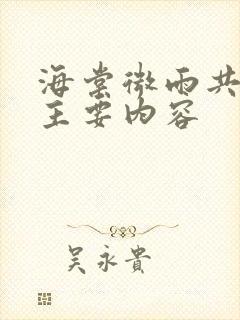 海棠微雨共
主要内容
吴永贵